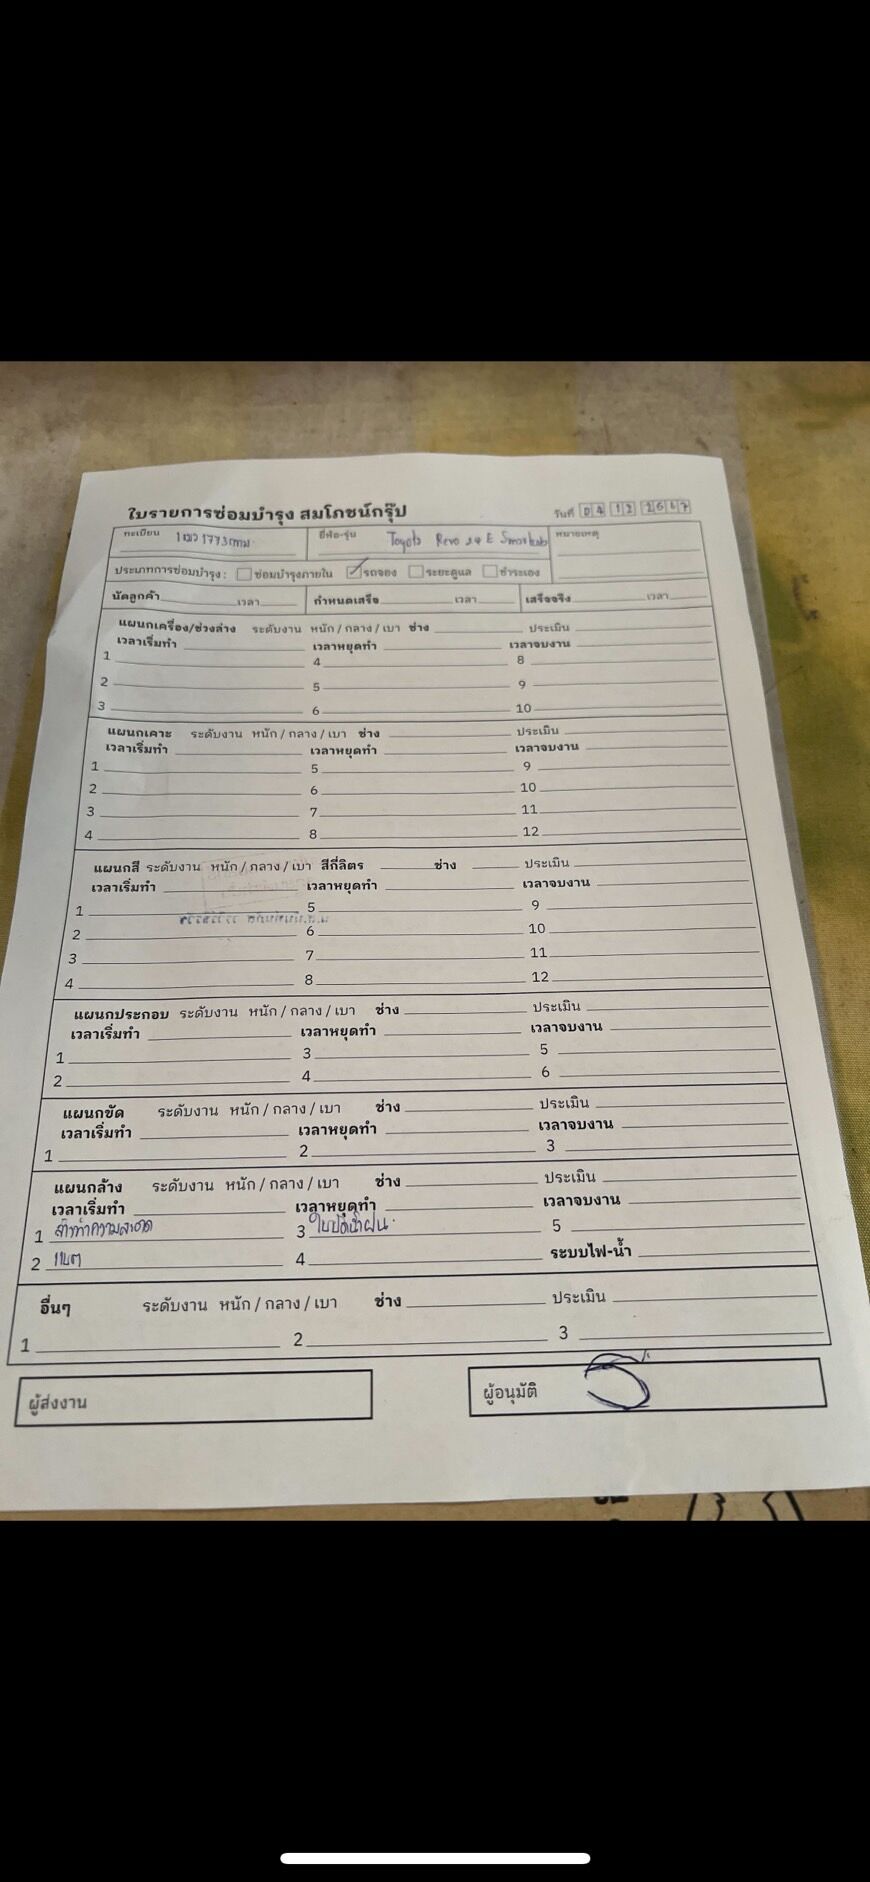 ใบรายการซ่อมบำรุง สมโภชน์กรุ๊ป วันที่ 04 12 2567
ทะเบียน 1773กทม. ยี่ห้อ-รุ่น Toyota Revo 2.4 E Smartcab หมายเหตุ
ประเภทการซ่อมบำรุง : ซ่อมบำรุงภายใน รถจอง ระยะดูแล ชำระเอง
นัดลูกค้า เวลา กำหนดเสร็จ เวลา เสร็จจริง เวลา
แผนกเครื่อง/ช่วงล่าง ระดับงาน หนัก / กลาง / เบา ช่าง ประเมิน
เวลาเริ่มทำ เวลาหยุดทำ เวลาจบงาน
1 4 8
2 5 9
3 6 10
แผนกเคาะ ระดับงาน หนัก / กลาง / เบา ช่าง ประเมิน
เวลาเริ่มทำ เวลาหยุดทำ เวลาจบงาน
1 5 9
2 6 10
3 7 11
4 8 12
แผนกสี ระดับงาน หนัก / กลาง / เบา สีกี่ลิตร ช่าง ประเมิน
เวลาเริ่มทำ เวลาหยุดทำ เวลาจบงาน
1 5 9
2 6 10
3 7 11
4 8 12
แผนกประกอบ ระดับงาน หนัก / กลาง / เบา ช่าง ประเมิน
เวลาเริ่มทำ เวลาหยุดทำ เวลาจบงาน
1 3 5
2 4 6
แผนกขัด ระดับงาน หนัก / กลาง / เบา ช่าง ประเมิน
เวลาเริ่มทำ เวลาหยุดทำ เวลาจบงาน
1 2 3
แผนกล้าง ระดับงาน หนัก / กลาง / เบา ช่าง ประเมิน
เวลาเริ่มทำ เวลาหยุดทำ เวลาจบงาน
1 ล้างทำความสะอาด 3 ใบปัดน้ำฝน. 5
2 แบต 4 ระบบไฟ-น้ำ
อื่นๆ ระดับงาน หนัก / กลาง / เบา ช่าง ประเมิน
1 2 3
ผู้ส่งงาน ผู้อนุมัติ